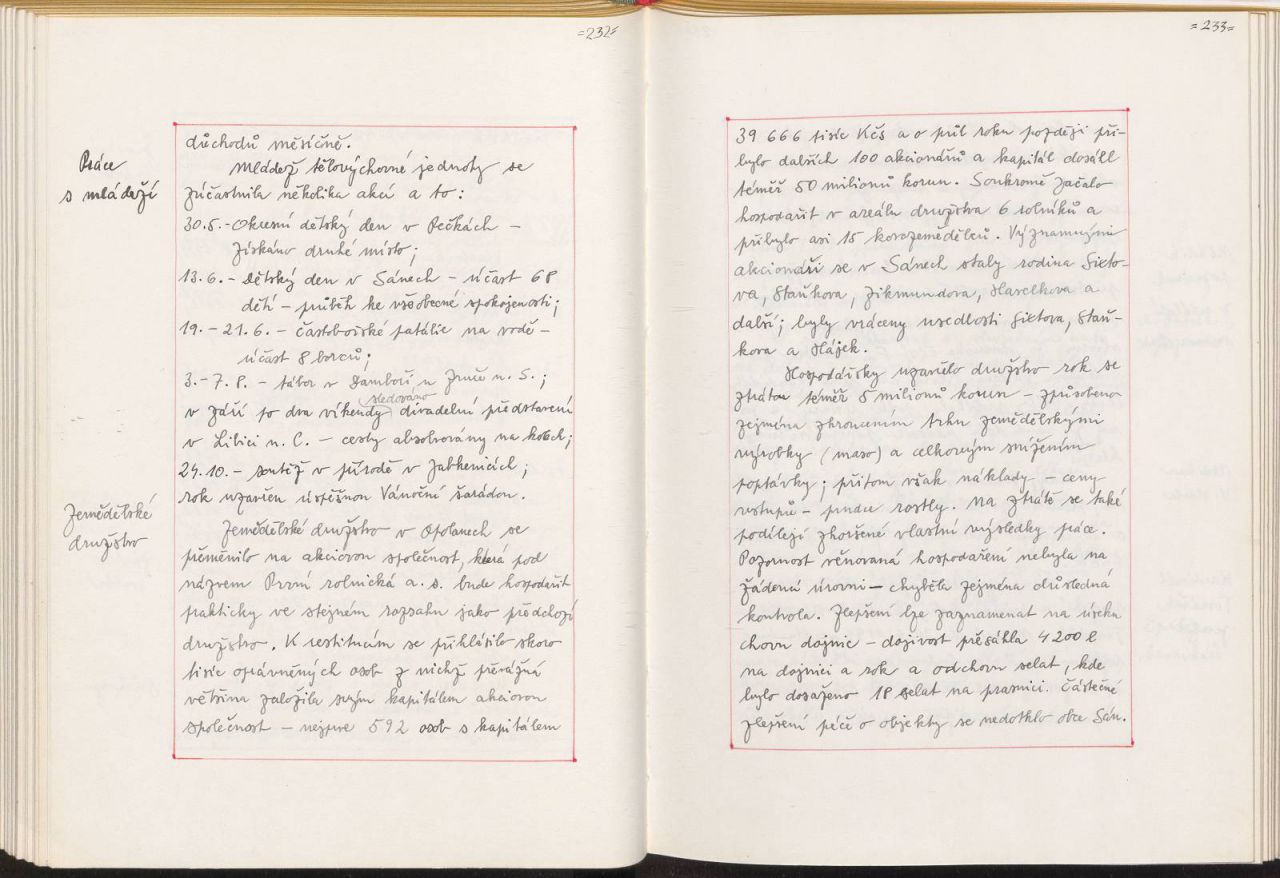 =232=
důchodů měsíčně.
Práce
s mládeží
Mládež tělovýchovné jednoty se
zúčastnila několika akcí a to:
30.5.- Okresní dětský den v Pečkách -
získáno druhé místo;
13.6. - Dětský den v Sánech - účast 68
dětí - průběh ke všeobecné spokojenosti;
19. - 21.6. - častoboiské patálie na vodě -
účast 8 borců;
3. - 7.8. - tábor v Jamboří u Zruče n. S.;
sledováno
v září po dva víkendy divadelní představení
v Libici n. C. - cesty absolvovány na kolech;
24.10. - soutěž v přírodě v Jabkenicích;
rok uzavřen úspěšnou Vánoční šarádou.
Zemědělské
družstvo
Zemědělské družstvo v Opolanech se
přeměnilo na akciovou společnost, která pod
názvem První rolnická a. s. bude hospodařit
prakticky ve stejném rozsahu jako předchozí
družstvo. K restitucím se přihlásilo skoro
tisíc oprávněných osob z nichž převážná
většina založila svým kapitálem akciovou
společnost - nejprve 592 osob s kapitálem
=233=
39 666 tisíc Kčs a o půl roku později při-
bylo dalších 100 akcionářů a kapitál dosáhl
téměř 50 milionů korun. Soukromě začalo
hospodařit v areálu družstva 6 rolníků a
přibylo asi 15 kovozemědělců. Významnými
akcionáři se v Sánech staly rodina Sixto-
va, Staňkova, Zikmundova, Havelkova a
další; byly vráceny usedlosti Sixtova, Staň-
kova a Hájek.
Hospodářsky uzavřelo družstvo rok se
ztrátou téměř 5 milionů korun - způsobenou
zejména zhroucením trhu zemědělskými
výrobky (maso) a celkovým snížením
poptávky; přitom však náklady - ceny
vstupů - prudce rostly. Na ztrátě se také
podílejí zhoršené vlastní výsledky práce.
Pozornost věnovaná hospodaření nebyla na
žádoucí úrovni - chyběla zejména důsledná
kontrola. Zlepšení lze zaznamenat na úseku
chovu dojnic - dojivost přesáhla 4 200 l
na dojnici a rok a odchovu selat, kde
bylo dosaženo 18 selat na prasnici. Částečné
zlepšení péče o objekty se nedotklo obce Sán.